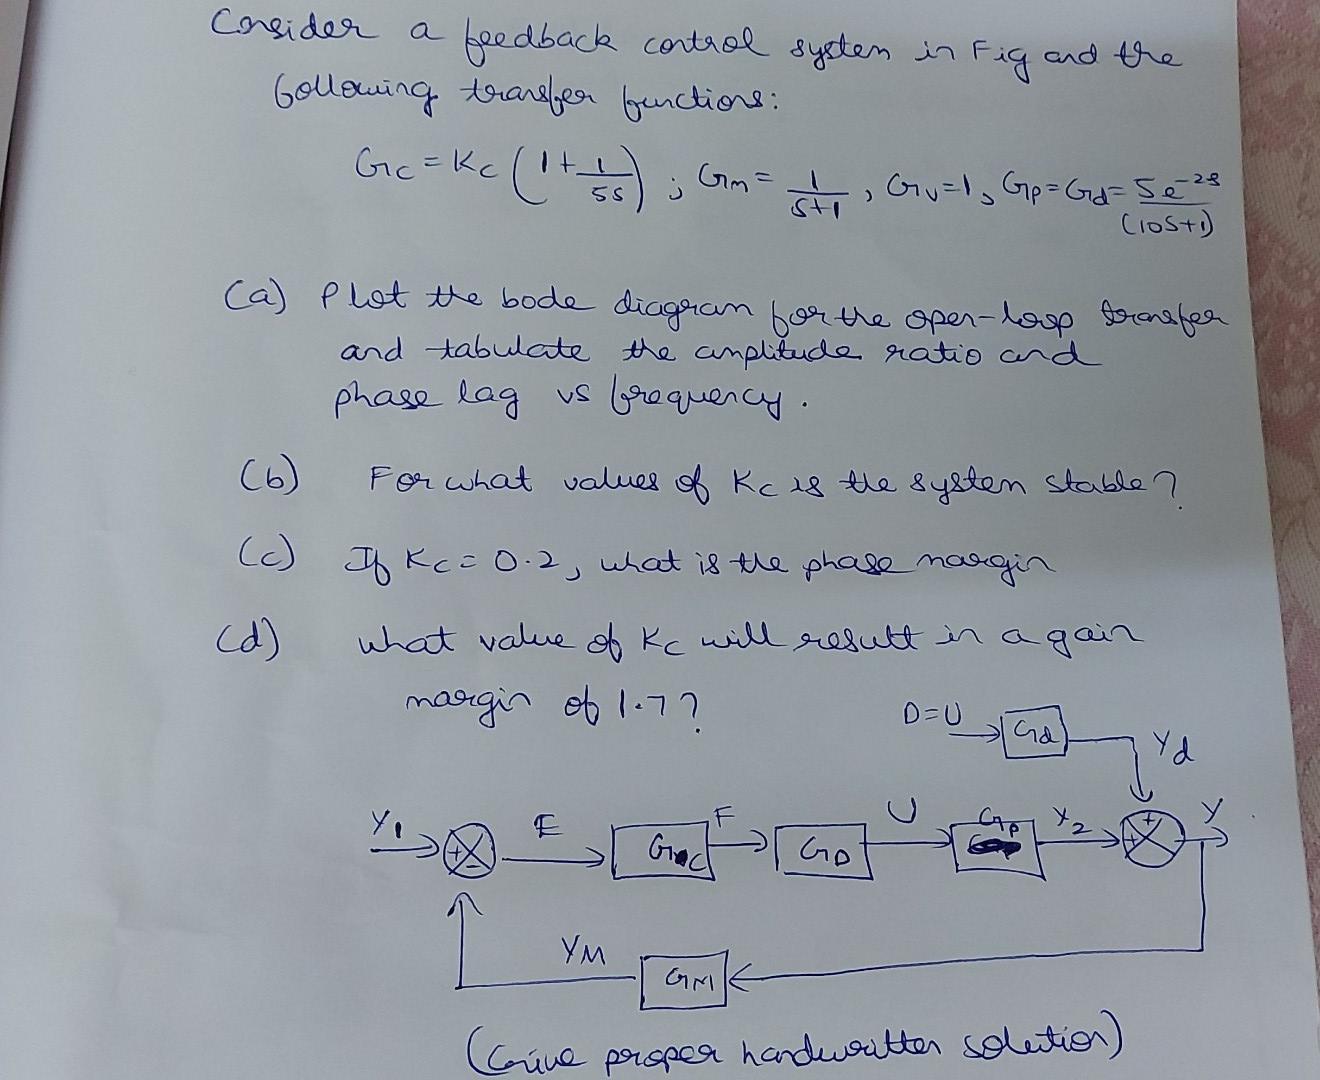 Consider a feedback control system in Fig and the
following transfer functions:
Gc = Kc (1 + 1/5s) ; Gm = 1/(s+1) , Gv=1, Gp=Gd= 5e^-2s/(10s+1)
(a) Plot the bode diagram for the open-loop transfer
and tabulate the amplitude ratio and
phase lag vs frequency.
(b) For what values of Kc is the system stable?
(c) If Kc = 0.2, what is the phase margin
(d) what value of Kc will result in a gain
margin of 1.7?
D=U Gd Yd
Y1 E Gc F GD U Gp Y2 Y
YM GM
(Give proper handwritten solution)